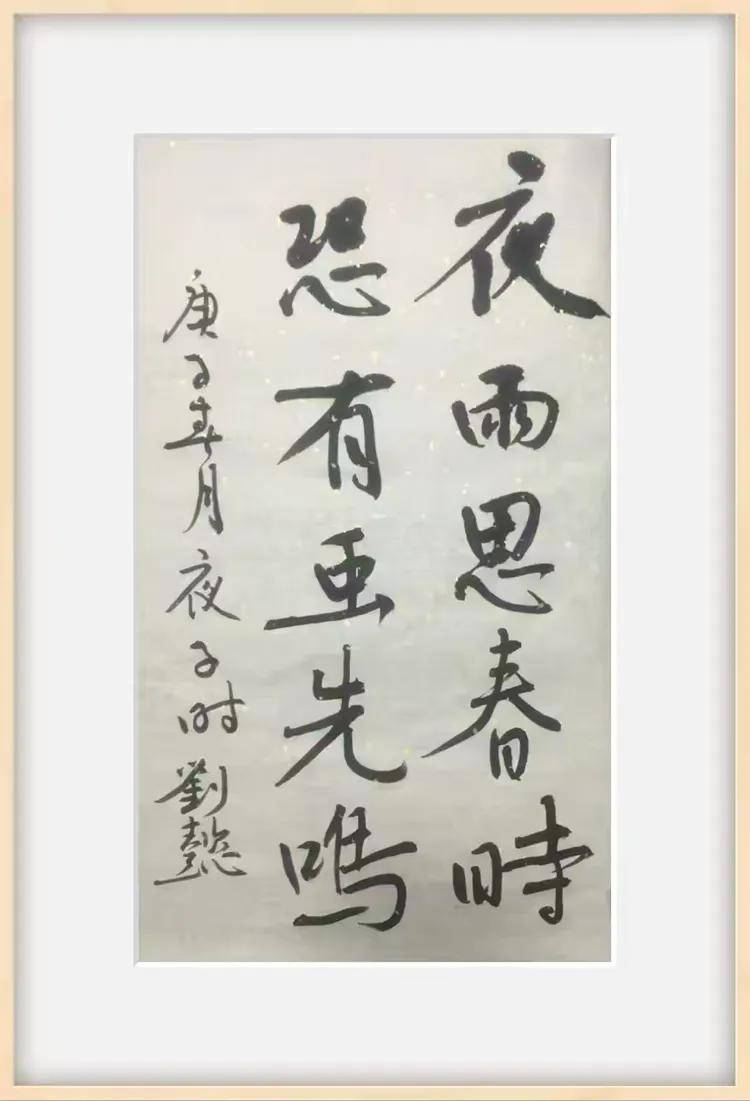 夜雨思春時
恐有虫先鳴
庚子春月夜子时劉懿